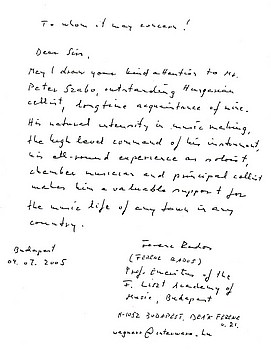 To whom it may concern!
Dear Sirs,
May I draw your kind attention to Mr.
Peter Szabo, outstanding Hungarian
cellist, longtime acquaintance of mine.
His natural intensity in music making,
the high level command of his instrument,
his all-round experience as soloist,
chamber musician and principal cellist
makes him a valuable support for
the music life of any town in any
country.
Budapest
04. 07. 2005
Ferenc Rados
(FERENC RADOS)
Prof. Emeritus of the
F. Liszt Academy of
Music, Budapest
H-1052 BUDAPEST, DEÁK FERENC
u. 21.